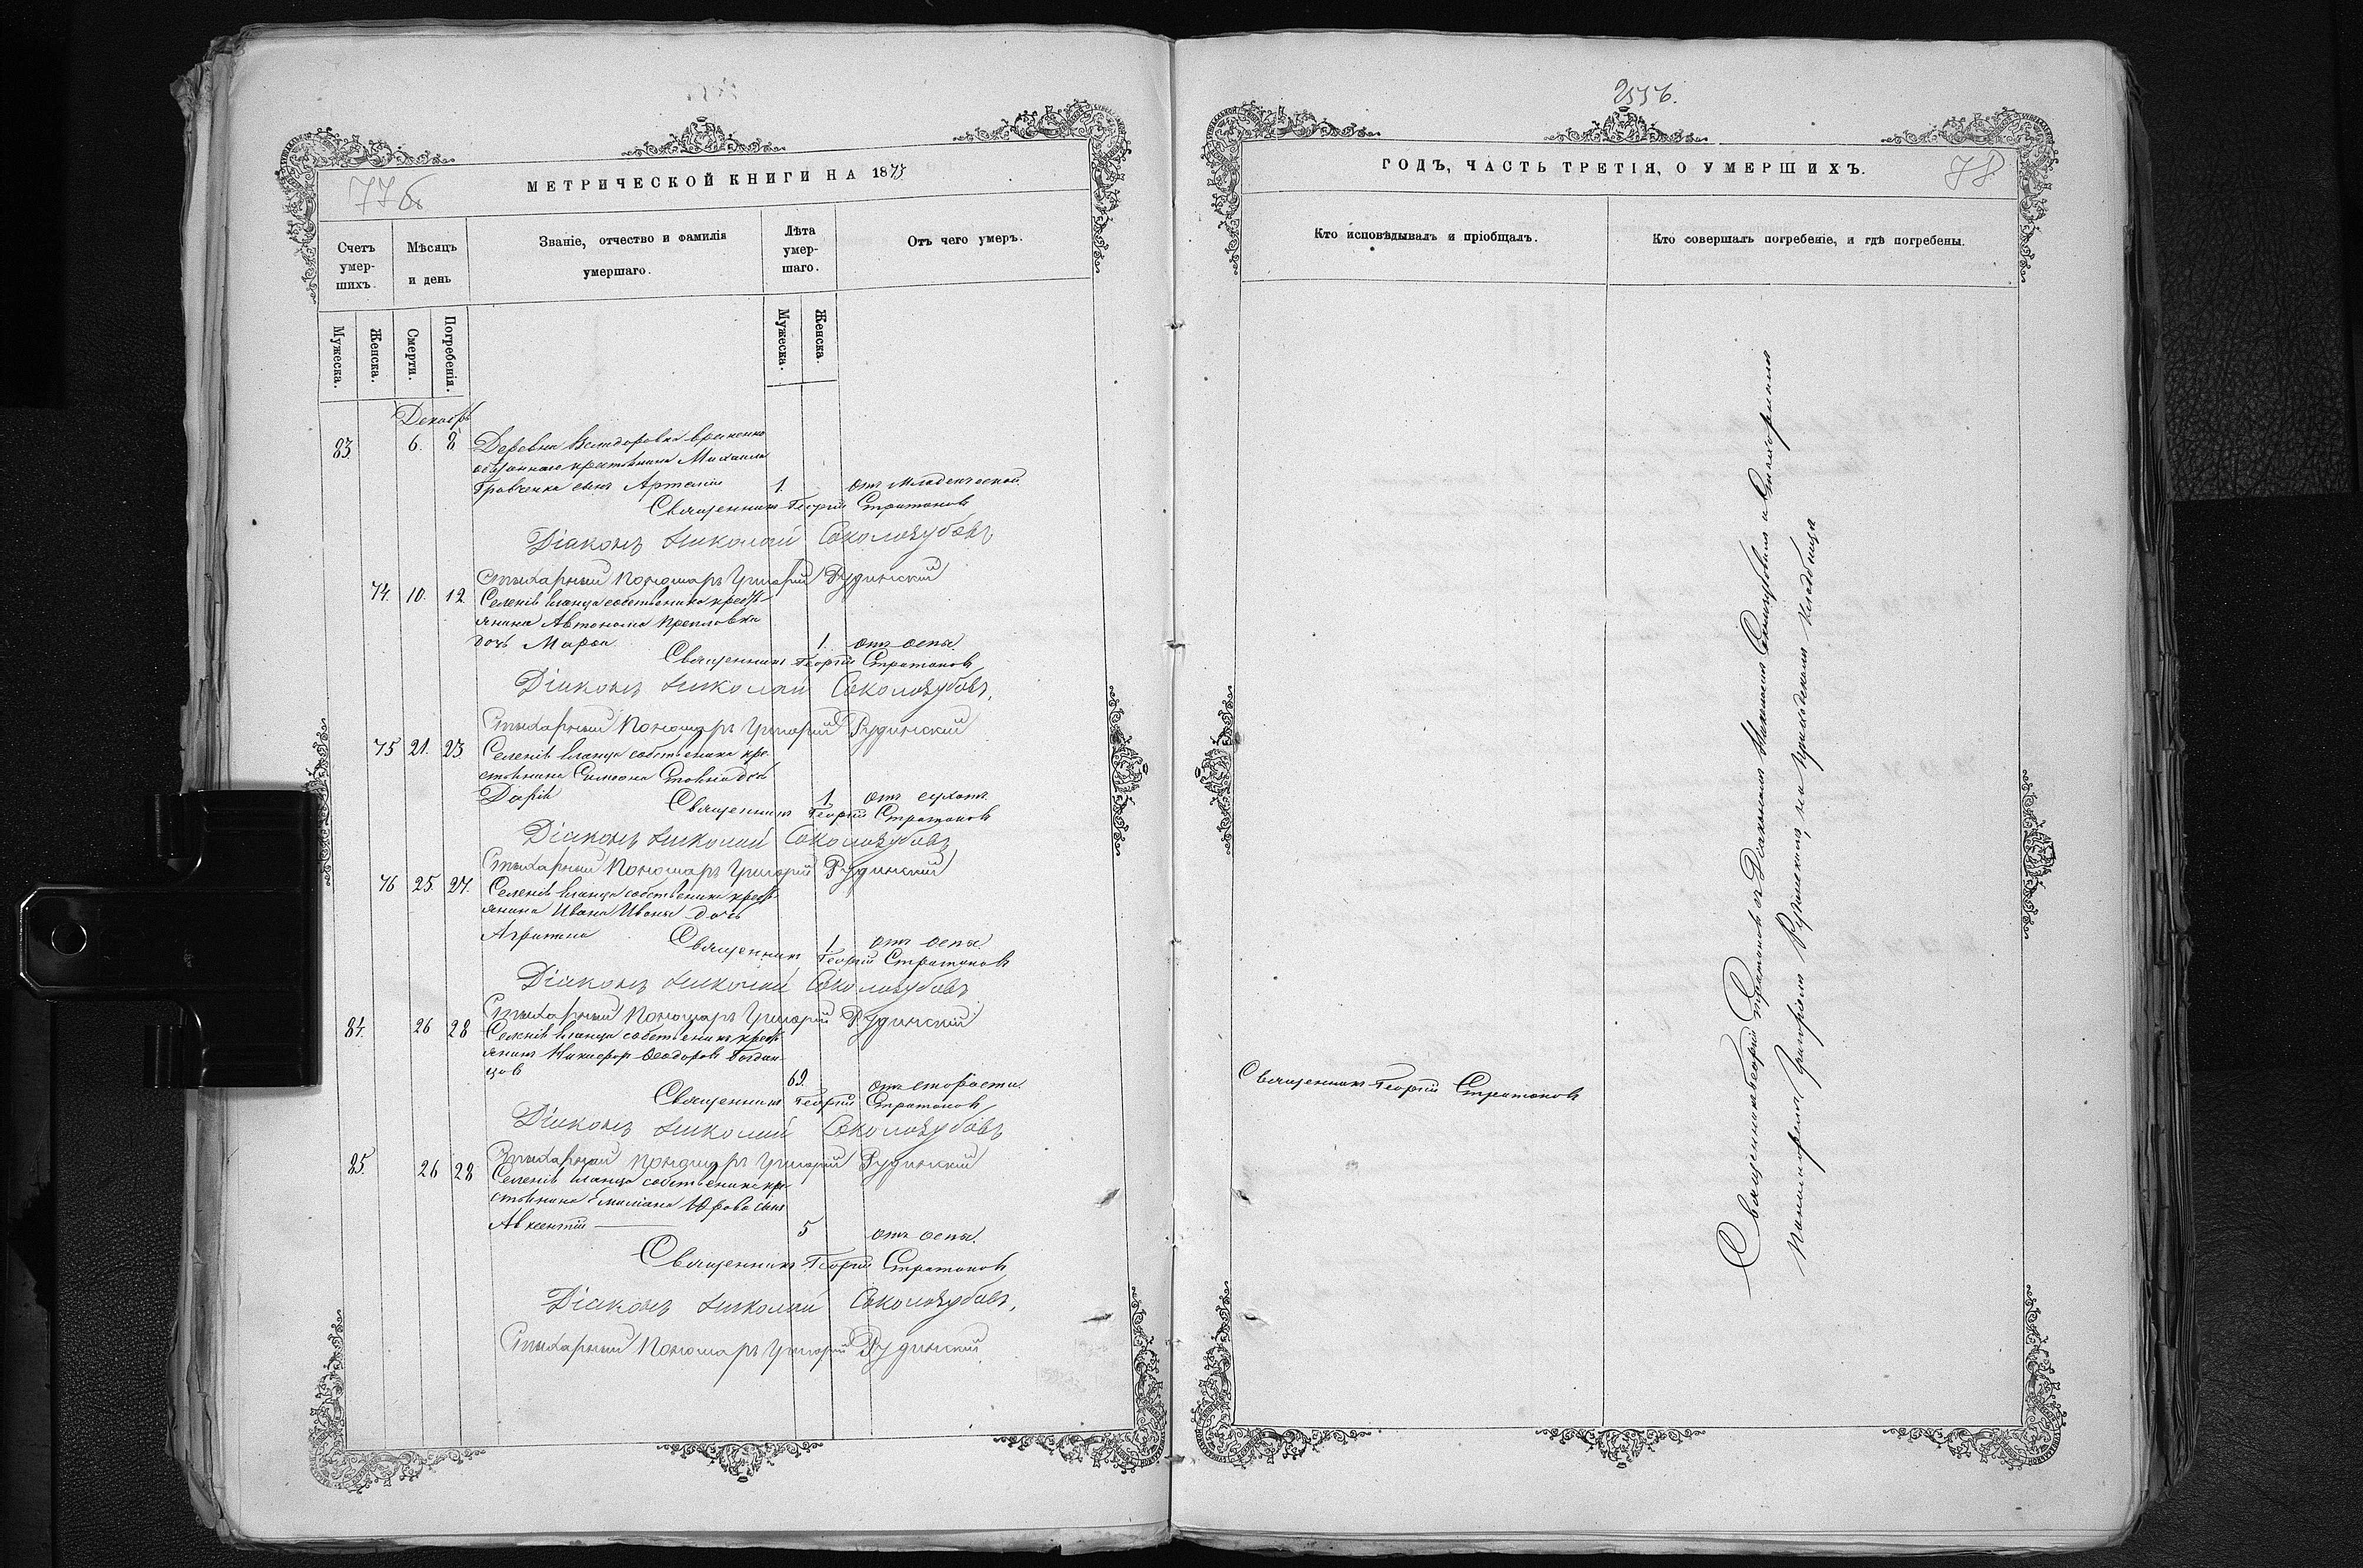 77б
МЕТРИЧЕСКОЙ КНИГИ НА 1875
Счетъ умер-шихъ.
Мѣсяцъ и день
Званіе, отчество и фамилія умершаго.
Лѣта умер-шаго.
Отъ чего умеръ.
Мужеска.
Женска.
Смерти.
Погребенія.
Мужеска.
Женска.
Декабрь
83. 6. 8 Деревни временно
обязаннаго крестьянина Михаила
Гравченка сынъ Артемій 1. отъ младенческой.
Священникъ Георгій Стратоновъ
Діаконъ Николай Соколовзубовъ
Стихарный Пономарь Григорій Рудинскій
74. 10. 12 Селенія собственника крестья
янина Автонома
дочь Марѳа 1. отъ оспы.
Священникъ Георгій Стратоновъ
Діаконъ Николай Соколовзубовъ,
Стихарный Пономарь Григорій Рудинскій
75 21. 23. Селенія собственника кре
стьянина Симеона дочь
Дарія 1. отъ сухотъ.
Священникъ Георгій Стратоновъ
Діаконъ Николай Соколовзубовъ
Стихарный Пономарь Григорій Рудинскій
76 25. 27. Селенія собственника кресть
янина Ивана дочь
Агрипина 1. отъ оспы.
Священникъ Георгій Стратоновъ
Діаконъ Николай Соколовзубовъ
Стихарный Пономарь Григорій Рудинскій
84. 26 28 Селенія собственникъ кресть
янинъ Никифоръ Ѳеодоровъ Богдан
цовъ 69. отъ старости.
Священникъ Георгій Стратоновъ
Діаконъ Николай Соколовзубовъ
Стихарный Пономарь Григорій Рудинскій
85 26 28 Селенія собственника кре
стьянина Емиліана Юрова сынъ
Авксентій 5 отъ оспы.
Священникъ Георгій Стратоновъ
Діаконъ Николай Соколовзубовъ,
Стихарный Пономарь Григорій Рудинскій
ГОДЪ, ЧАСТЬ ТРЕТІЯ, О УМЕРШИХЪ.
78
Кто исповѣдывалъ и пріобщалъ.
Кто совершалъ погребеніе, и гдѣ погребены.
Священникъ Георгій Стратоновъ
Священникъ Георгій Стратоновъ съ Діакономъ Николаемъ Соколовзубовымъ и Стихарнымъ
Пономаремъ Григоріемъ Рудинскимъ, на приходскомъ кладбищѣ